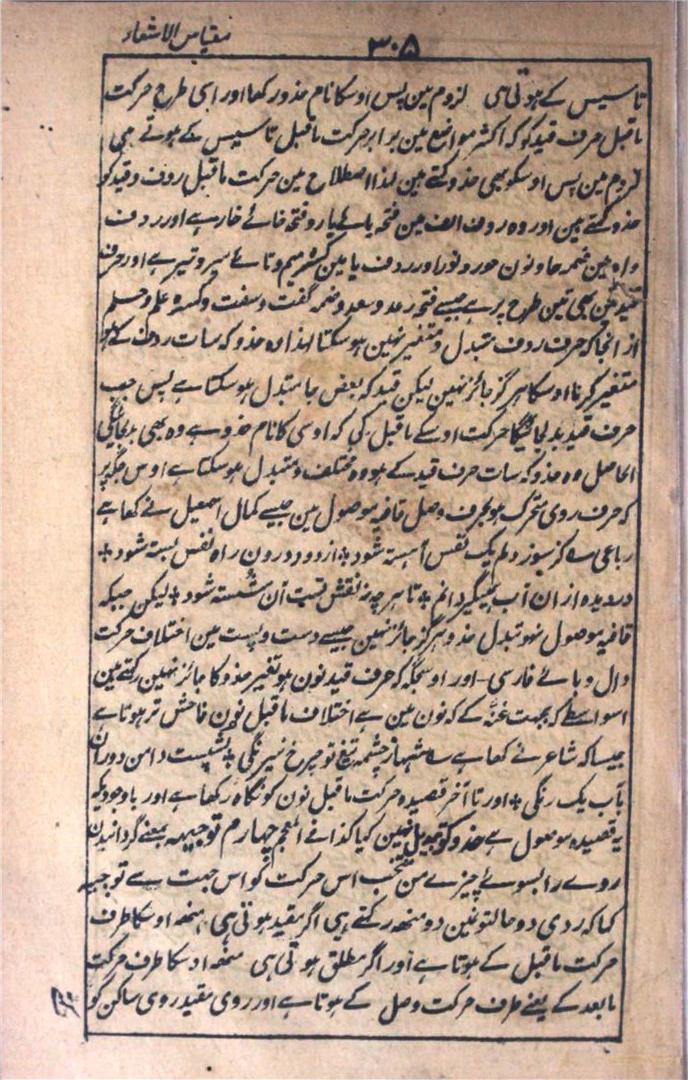 مقیاس الاشعار
۳۰۵
تاسیس کے ہوتی ہی لزوم مین پس اوسکا نام حذو رکھا اور اسی طرح حرکت
ماقبل حرف قید کو کہ اکثر مواضع مین برابر حرکت ماقبل تاسیس کے ہوتے ہی
لزوم مین پس اوسکو بھی حذو کہتے ہین لہذا اصطلاح مین حرکت ماقبل ردف و قید کو
حذو کہتے ہین اور وہ ردف الف مین فتحہ یائے یار و فتحہ خائے خار ہے اور ردف
واو مین ضمہ حا و نون حور و نور اور ردف یا مین کسرہ میم و تائے میر و تیر ہے اور حرف
قید مین بھی تین طرح پر ہے جیسے فتحہ رعد و سعد و ضمہ گفت و سفت و کسرہ علم و حلم
از انجا کہ حرف ردف متبدل و متغیر نہین ہو سکتا لہذا وہ حذو کہ سات ردف کے ہو
متغیر کرنا اوسکا ہرگز جائز نہین لیکن قید کہ بعض جا متبدل ہو سکتا ہے پس جب
حرف قید بدلجائیگا حرکت اوسکے ماقبل کی کہ اوسی کا نام حذو ہے وہ بھی بدلجائیگی
الحاصل وہ حذو کہ سات حرف قید کے ہو وہ مختلف و متبدل ہو سکتا ہے اوس جگہ پر
کہ حرف روی متحرک ہو بحرف وصل قافیہ موصول مین جیسے کمال اسمعیل نے کہا ہے
رباعی ؎ کز سوز دلم یک نفس آہستہ شود ٭ از دود درون راہ نفس بستہ شود ٭
در دیدہ از ان آب ہمیگردانم ٭ تا ہر چہ نہ نقش تست آن شستہ شود ٭ لیکن جبکہ
قافیہ موصول نہو تبدل حذو ہرگز جائز نہین جیسے دست و پست مین اختلاف حرکت
دال و بائے فارسی۔ اور اوسجگہ کہ حرف قید نون ہو تغیر حذو کا جائز نہین رکھتے ہین
اسواسطے کہ بجہت غنہ کے کہ نون مین ہے اختلاف ماقبل نون فاحش تر ہوتا ہے
جیسا کہ شاعر نے کہا ہے ؎ شہا ز چشمہ تیغ تو چرخ نیرنگی ٭ بشست دامن دوران
بآب یک رنگی ٭ اور تا آخر قصیدہ حرکت ماقبل نون کو نگاہ رکھا ہے اور باوجودیکہ
یہ قصیدہ موصول ہے حذو کو تبدیل نہین کیا کذا فے المعجم چہارم توجیہہ بمعنے گردانیدن
روے را بسوئے چیزے من منتخب اس حرکت کو اس جہت سے توجیہ
کہا کہ ردی دو حالتو نمین دو منھہ رکھتے ہی اگر مقید ہوتی ہی منھہ اوسکا طرف
حرکت ماقبل کے ہوتا ہے اور اگر مطلق ہوتی ہی منھہ اوسکا طرف حرکت
مابعد کے یعنے طرف حرکت وصل کے ہوتا ہے اور روی مقید روی ساکن کو